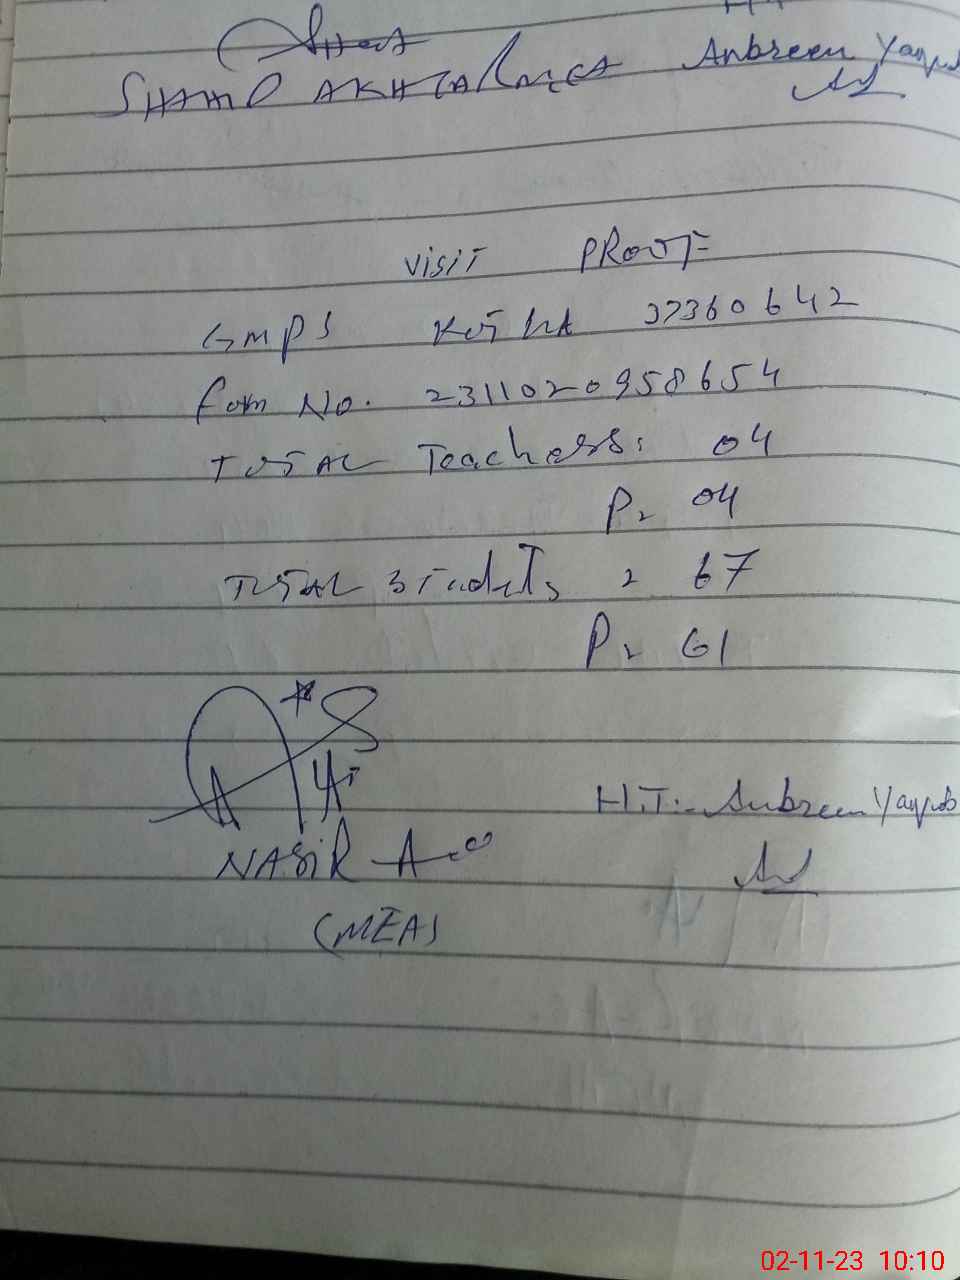 SHAMD AKHTAR MEA Anbreen Yaqub
VISIT PROOF
GMPS 37360642
Form No. 2311020958654
TOTAL Teachers: 04
P= 04
TOTAL Students = 67
P= 61
NASIR
(MEA)
H.T:- Anbreen Yaqub
02-11-23 10:10